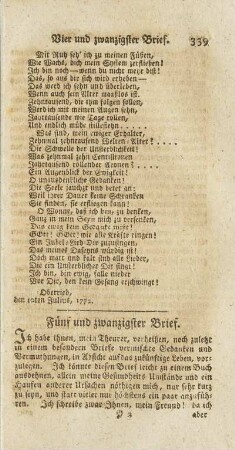 Vier und zwanzigster Brief. 339
Mit Ruh seh' ich zu meinen Füßen,
Wie Wachs, dich mein System zerfließen!
Ich bin noch — wenn du nicht mehr bist!
Das, so aus dir sich wird erheben —
Das werd ich sehn und überleben,
Wenn auch sein Alter maaßlos ist.
Zehntausend, die ihm folgen sollen,
Werd ich mit meinen Augen sehn,
Jahrtausende wie Tage rollen,
Und endlich müde stillestehn. . . .
Was sind, mein ewiger Erhalter,
Zehnmal zehntausend Welten-Alter? . . .
Die Schwelle der Unsterblichkeit!
Was zehnmal zehn Centillionen
Jahrtausend rollender Äonen! . . .
Ein Augenblick der Ewigkeit!
O unausdenkliche Gedanken!
Die Seele jauchzt und betet an:
Weil ihrer Dauer keine Schranken
Sie finden, sie ersteigen kann!
O Wonne, daß ich bin, zu denken,
Ganz in mein Seyn mich zu versenken,
Daß ewig kein Gedanke mehr!
Gott! Gott! wie alle Kräfte ringen
Ein Jubel-Lied Dir zuzusingen,
Daß meines Daseyns würdig sey
Dir, der mich
Die ein Unsterblicher Dir singt!
Ich bin, bin ewig, falle nieder
Vor Dir, den kein Gesang erschwingt!
Oberried,
den 10ten Julius, 1772.
Fünf und zwanzigster Brief.
Ich habe Ihnen, mein Theurer, verheissen, noch zuletzt
in einem besondern Briefe vermischte Gedanken und
Vermuthungen, in Absicht auf das zukünftige Leben, vor-
zulegen. Ich könnte diesen Brief leicht zu einem Buch
ausdehnen, allein meine Gesundheits Umstände und ein
Haufen anderer Ursachen nöthigen mich, nur sehr kurz
zu seyn, und statt mehrern höchstens ein paar anzufüh-
ren. Ich schreibe zwar Ihnen, mein Freund! da ich
Y 2 aber